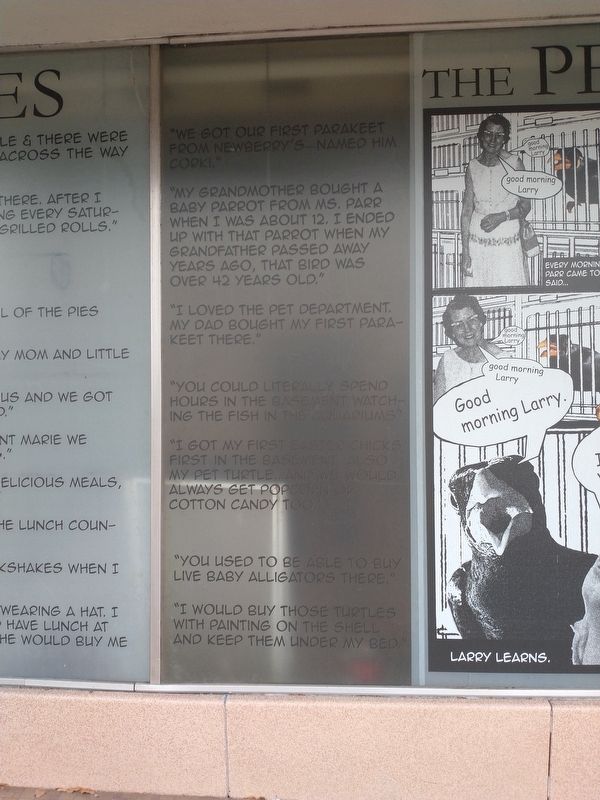 ES
LE & THERE WERE
ACROSS THE WAY
THERE. AFTER I
NG EVERY SATUR-
GRILLED ROLLS."
L OF THE PIES
Y MOM AND LITTLE
US AND WE GOT
NT MARIE WE
ELICIOUS MEALS,
HE LUNCH COUN-
KSHAKES WHEN I
WEARING A HAT. I
HAVE LUNCH AT
HE WOULD BUY ME
"WE GOT OUR FIRST PARAKEET
FROM NEWBERRY'S...NAMED HIM
CORKI."
"MY GRANDMOTHER BOUGHT A
BABY PARROT FROM MS. PARR
WHEN I WAS ABOUT 12. I ENDED
UP WITH THAT PARROT WHEN MY
GRANDFATHER PASSED AWAY
YEARS AGO, THAT BIRD WAS
OVER 42 YEARS OLD."
"I LOVED THE PET DEPARTMENT.
MY DAD BOUGHT MY FIRST PARA-
KEET THERE."
"YOU COULD LITERALLY SPEND
HOURS IN THE BASEMENT WATCH-
ING THE FISH IN THE AQUARIUMS"
"I GOT MY FIRST EASTER CHICKS
FIRST IN THE BASEMENT. ALSO
MY PET TURTLE...AND WE WOULD
ALWAYS GET POPCORN
COTTON CANDY
"YOU USED TO BE ABLE TO BUY
LIVE BABY ALLIGATORS THERE."
"I WOULD BUY THOSE TURTLES
WITH PAINTING ON THE SHELL
AND KEEP THEM UNDER MY BED."
THE PE
good morning Larry
good morning
Larry
EVERY MORNIN
PARR CAME TO
SAID...
good morning Larry
good morning
Larry
Good
morning Larry.
I
LARRY LEARNS.